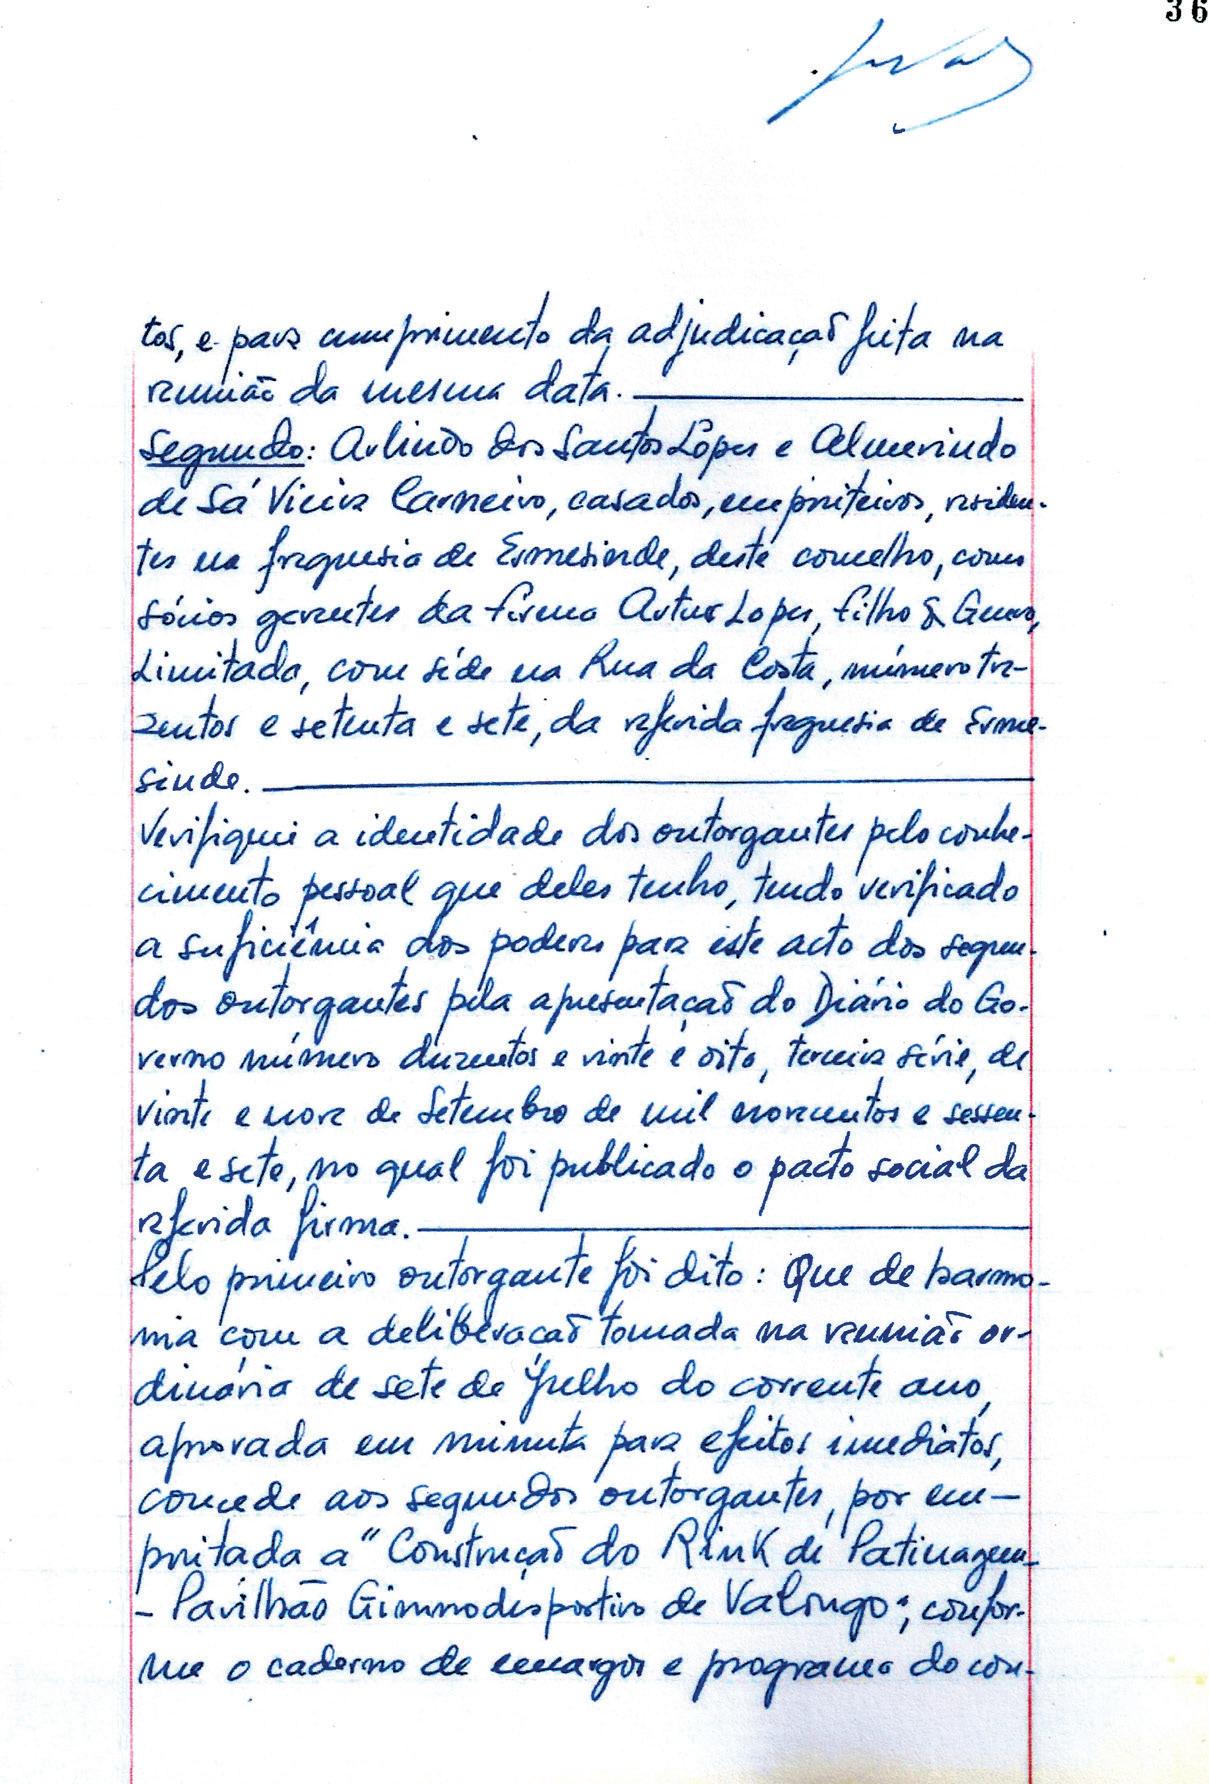 36
tos, e para cumprimento da adjudicação feita na
reunião da mesma data.
Segundo: Arlindo dos Santos Lopes e Almerindo
de Sá Vieira Carneiro, casados, empriteiros, residen-
tes na freguesia de Ermesinde, deste concelho, como
sócios gerentes da firma Artur Lopes, Filho & Genro,
Limitada, com séde na Rua da Costa, número tre-
zentos e setenta e sete, da referida freguesia de Erme-
sinde.
Verifiquei a identidade dos outorgantes pelo conhe-
cimento pessoal que deles tenho, tendo verificado
a suficiência dos poderes para este acto dos segun-
dos outorgantes pela apresentação do Diário do Go-
verno número duzentos e vinte e oito, terceira série, de
vinte e nove de Setembro de mil novecentos e sessen-
ta e sete, no qual foi publicado o pacto social da
referida firma.
Pelo primeiro outorgante foi dito: Que de harmo-
nia com a deliberação tomada na reunião or-
dinária de sete de Julho do corrente ano,
aprovada em minuta para efeitos imediatos,
concede aos segundos outorgantes, por em-
preitada a "Construção do Rink de Patinagem-
- Pavilhão Gimnodesportivo de Valongo", confor-
me o caderno de encargos e programa do con-